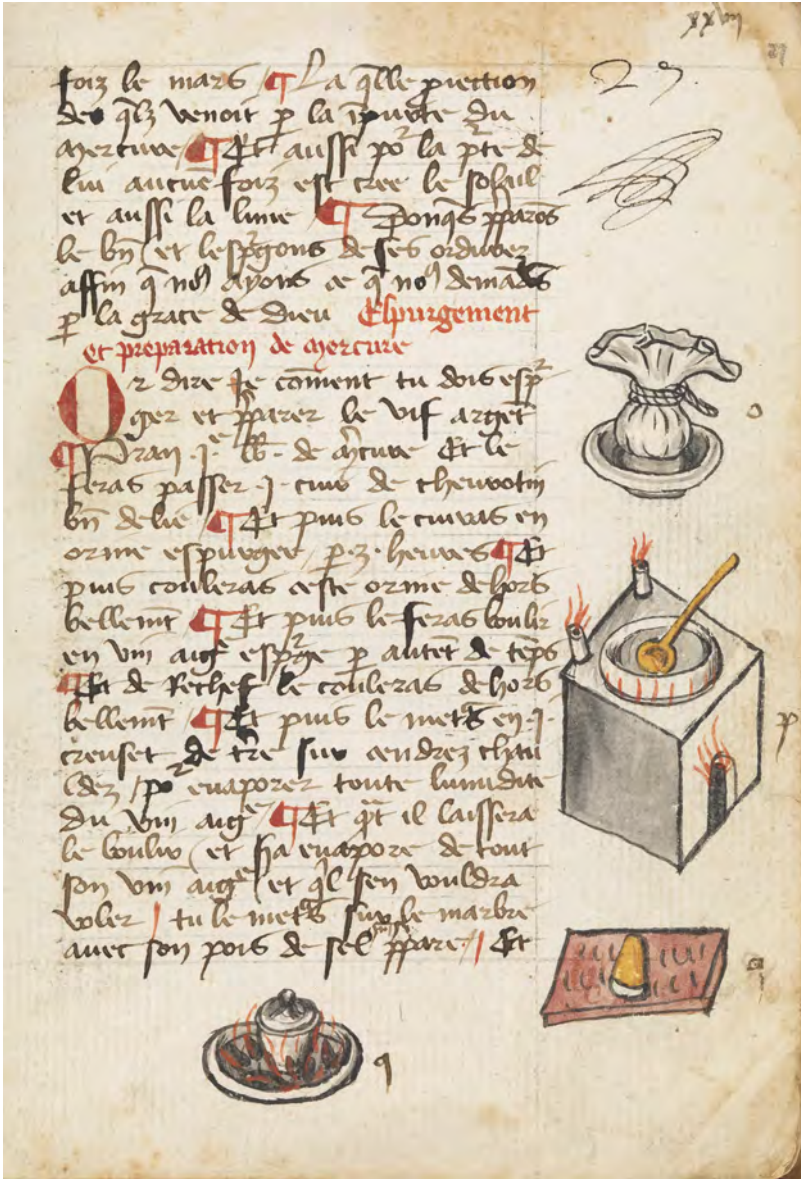 xxvii
27
27.
foiz le mars ¶ La q̄lle p̱iection
des q̄lz venoit p̱ la īpurte du
mercure ¶ Et aussi po^r la p̱te de
lui aucūe foiz est cree le soleul
et aussi la lune ¶ Donq̄s p̱paros̄
le bn̄ et lesp^rgons de ses ordures
affin q̄ no^9 ayons ce q̄ no^9 demādōs
p̱ la grace de dieu Espurgement
et preparation de mercure
Or dire Je cōment tu dois esp^r
ger et p̱parer le vif argēt
¶ Pran .j^e. lb̄. de m̄cure Et le
feras passer .j. cuir de cheurotin
bn̄ delie ¶ Et puis le cuiras en
orine espurgee / p̱ .z. heures ¶ Et
puis couleras ceste orine dehors
bellemn̄t ¶ Et puis le feras boulir
en vin aig^e esp^rge p̱ autēt de tēps
¶ Et de Rechef le couleras dehors
bellemn̄t ¶ Et puis le met^as en .j.
creuset de t̄re sur cendrez chau
ldez / po^r euaporer toute lumidite
du vin aig^e ¶ Et q^at il laissera
le boulir / et ha euapore de tout
son vin aig^e / et q̄l sen vouldra
voler / tu le met^as sur le marbre
auec son pois de sel p̱pare / Et
o
p
q
q